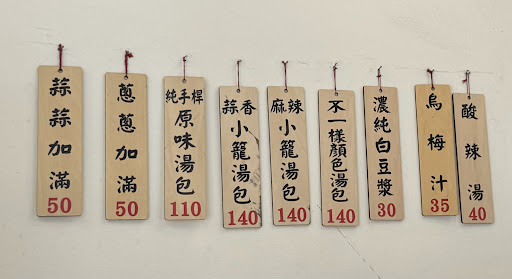 蒜蒜加滿
50
蔥蔥加滿
50
純手桿
原味湯包
110
蒜香
小籠湯包
140
麻辣
小籠湯包
140
不一樣顏色湯包
140
濃純白豆漿
30
烏梅汁
35
酸辣湯
40